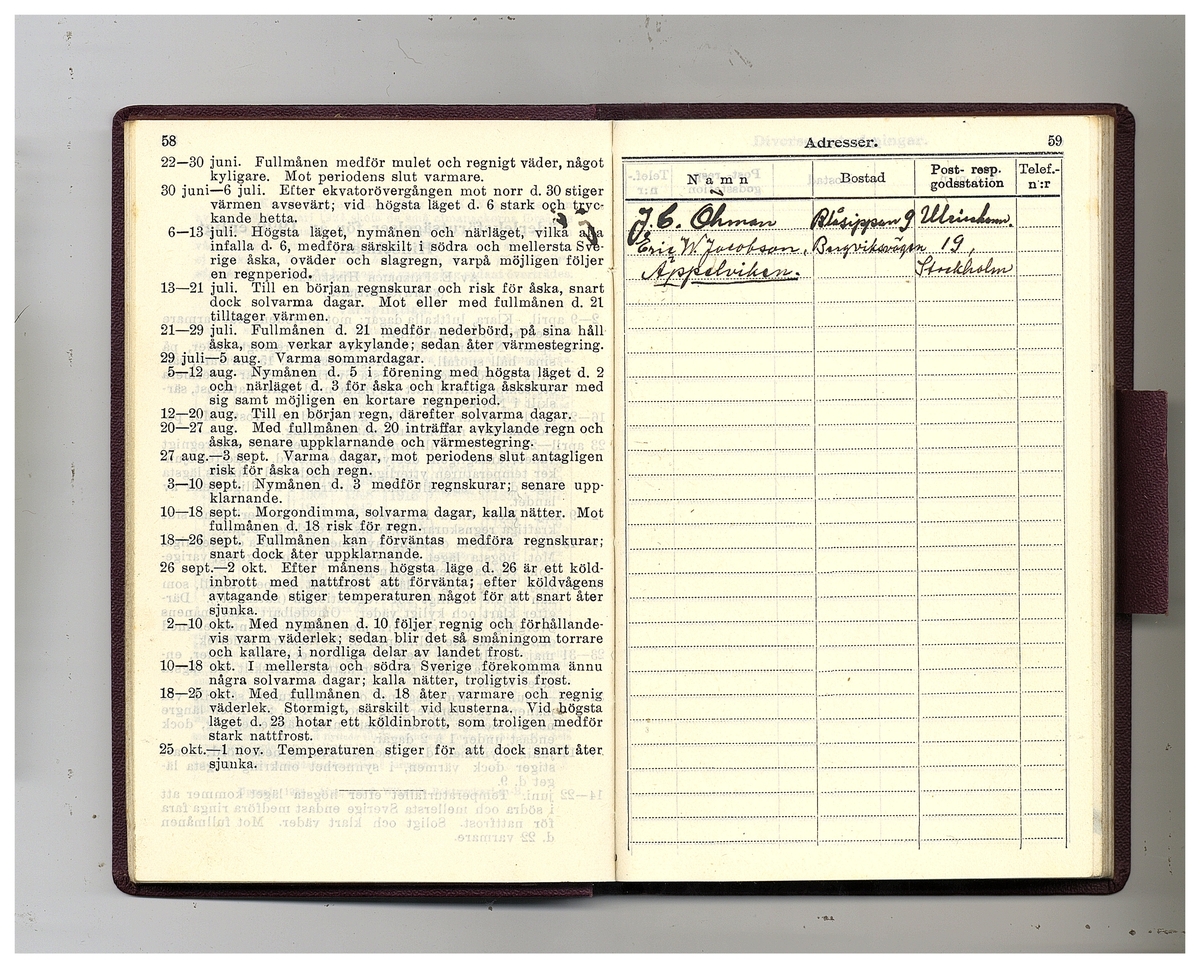 58
22—30 juni. Fullmånen medför mulet och regnigt väder, något
kyligare. Mot periodens slut varmare.
30 juni—6 juli. Efter ekvatorövergången mot norr d. 30 stiger
värmen avsevärt; vid högsta läget d. 6 stark och tryc-
kande hetta.
6—13 juli. Högsta läget, nymånen och närläget, vilka alla
infalla d. 6, medföra särskilt i södra och mellersta Sve-
rige åska, oväder och slagregn, varpå möjligen följer
en regnperiod.
13—21 juli. Till en början regnskurar och risk för åska, snart
dock solvarma dagar. Mot eller med fullmånen d. 21
tilltager värmen.
21—29 juli. Fullmånen d. 21 medför nederbörd, på sina håll
åska, som verkar avkylande; sedan åter värmestegring.
29 juli—5 aug. Varma sommardagar.
5—12 aug. Nymånen d. 5 i förening med högsta läget d. 2
och närläget d. 3 för åska och kraftiga åskskurar med
sig samt möjligen en kortare regnperiod.
12—20 aug. Till en början regn, därefter solvarma dagar.
20—27 aug. Med fullmånen d. 20 inträffar avkylande regn och
åska, senare uppklarnande och värmestegring.
27 aug.—3 sept. Varma dagar, mot periodens slut antagligen
risk för åska och regn.
3—10 sept. Nymånen d. 3 medför regnskurar; senare upp-
klarnande.
10—18 sept. Morgondimma, solvarma dagar, kalla nätter. Mot
fullmånen d. 18 risk för regn.
18—26 sept. Fullmånen kan förväntas medföra regnskurar;
snart dock åter uppklarnande.
26 sept.—2 okt. Efter månens högsta läge d. 26 är ett köld-
inbrott med nattfrost att förvänta; efter köldvågens
avtagande stiger temperaturen något för att snart åter
sjunka.
2—10 okt. Med nymånen d. 10 följer regnig och förhållande-
vis varm väderlek; sedan blir det så småningom torrare
och kallare, i nordliga delar av landet frost.
10—18 okt. I mellersta och södra Sverige förekomma ännu
några solvarma dagar; kalla nätter, troligtvis frost.
18—25 okt. Med fullmånen d. 18 åter varmare och regnig
väderlek. Stormigt, särskilt vid kusterna. Vid högsta
läget d. 23 hotar ett köldinbrott, som troligen medför
stark nattfrost.
25 okt.—1 nov. Temperaturen stiger för att dock snart åter
sjunka.
Adresser. 59
Namn Bostad Post- resp. godsstation Telef.- n:r
J. C. Öhman Blåsippan 9
Eric W. Jacobson, Bergviksvägen 19,
Äppelviken. Stockholm